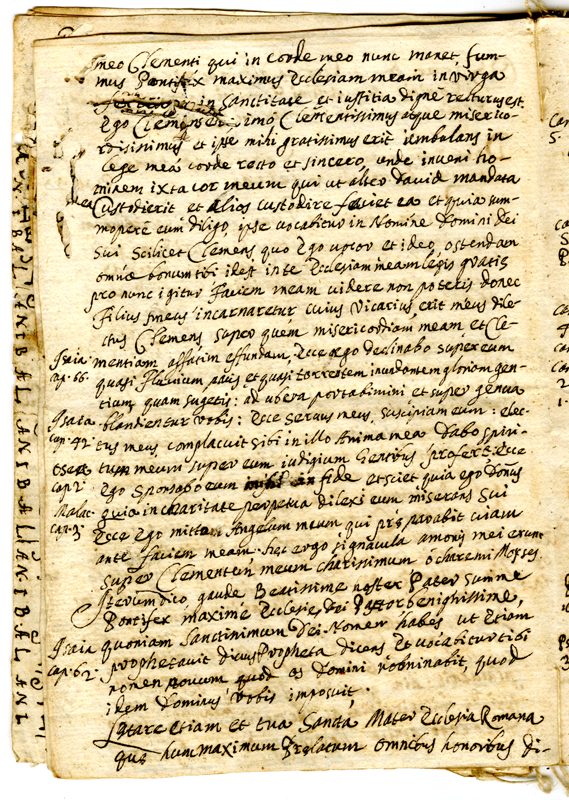 meo Clementi qui in corde meo nunc manet, sum-
mus Pontifex maximus Ecclesiam meam in virga
in Sanctitate et iustitia digne recturus est.
Ego Clemens imo Clementissimus atque miserico-
rdissimus et ipse mihi gratissimus erit ambulans in
lege mea corde recto et sincero, unde inveni ho-
minem iuxta cor meum qui ut alter david mandata
Custodierit et alios custodire faciet ea et quia sum-
mopere eum diligo, ipse vocabitur in Nomine Domini Dei
sui scilicet Clemens quo Ego vocor et ideo ostendam
omne bonum tibi idest in te Ecclesiam meam legis gratis
pro nunc igitur faciem meam videre non poteris donec
Filius meus incarnaretur cuius Vicarius erit meus dile-
ctus Clemens super quem misericordiam meam et Cle-
mentiam affatim effundam, Ecce ego declinabo super eum
Isaia
cap. 66.
quasi Fluvium pacis et quasi torrentem inundantem gloriam gen-
tium quam sugetis: ad ubera portabimini et super genua
Isaia
cap. 42
blandientur vobis: Ecce Servus meus, suscipiam eum: elec-
tus meus complacuit sibi in illo Anima mea dabo spiri-
Osea
cap. 2.
tum meum super eum iudicium Gentibus proferet Ecce
Ego Sponsabo eum in fide et sciet quia ego Donus
Malac.
cap. 3
quia in charitate perpetua dilexi eum miserans Sui
Ecce Ego mittam Angelum meum qui preparabit viam
ante faciem meam. hec ergo signacula amoris mei erunt
super Clementem meum charissimum ò chremi Moyses
Iterum dico, gaude Beatissime noster Pater Summe
Pontifex maxime Ecclesie Dei Pastor benignissime,
Isaia
cap. 62.
quoniam Sanctissimum Dei Nomen habes ut Etiam
prophetavit dicus Propheta dicens Et vocabitur tibi
nomen novum quod os Domini nominabit, quod
idem Dominus vobis imposuit.
Letare Etiam et tua Sancta Mater Ecclesia Romana
que hunc maximum Prelatum omnibus honoribus di-
ANIBAL ANIBAL ANIBAL ANIBAL ANI